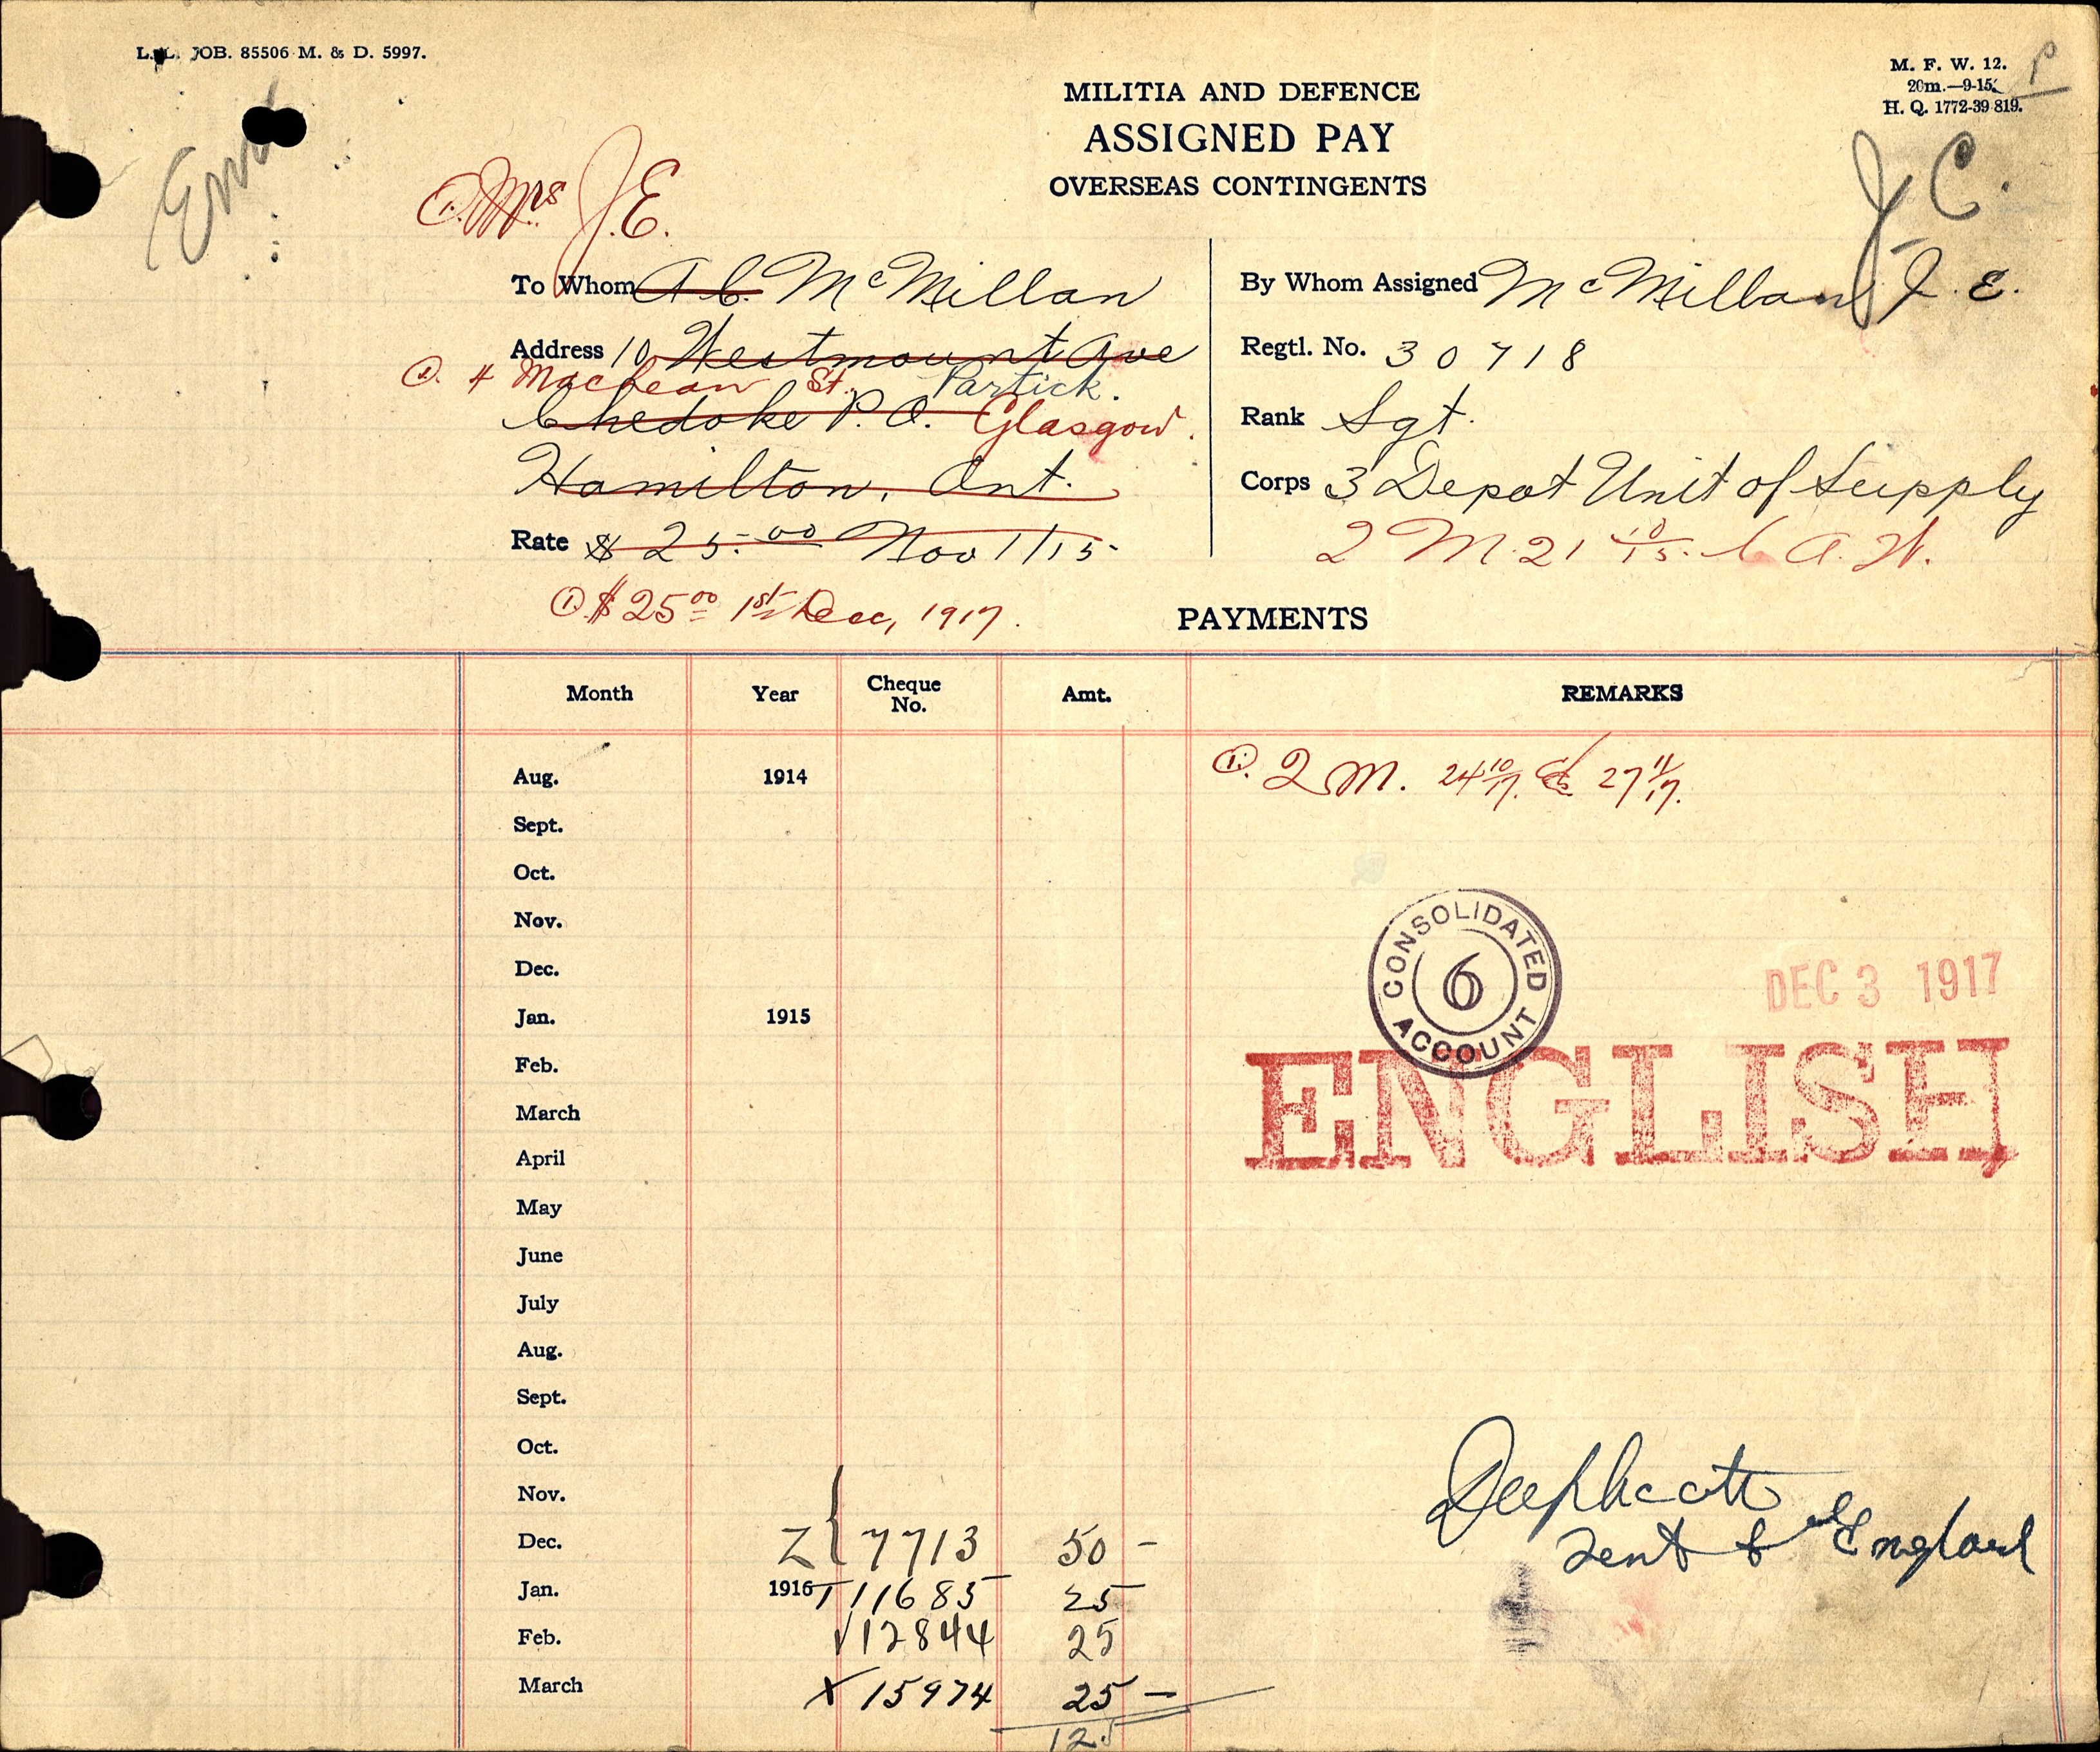 L. L. JOB. 85506 M. & D. 5997.
M. F. W. 12.
20m.—9-15.
H. Q. 1772-39-819.
P
MILITIA AND DEFENCE
ASSIGNED PAY
OVERSEAS CONTINGENTS
J C.
① Mrs J.E.
To Whom A C. McMillan
Address 10 Westmount Ave
① 4 MacLean St. Partick.
Chedoke P. O. Glasgow.
Hamilton, Ont.
Rate $ 25.00 Nov 1/15
① $25 00 1st Dec, 1917.
By Whom Assigned McMillan J. E.
Regtl. No. 30718
Rank Sgt.
Corps 3 Depot Unit of Supply
2 M. 21 10/15. C A. W.
PAYMENTS
Month Year Cheque No. Amt. REMARKS
Aug. 1914 ① 2 M. 24 10/17. 27 11/17.
Sept.
Oct.
Nov.
Dec.
Jan. 1915
Feb.
March
April
May
June
July
Aug.
Sept.
Oct.
Nov.
Dec. Z { 7713 50 -
Jan. 1916 11685 25 -
Feb. 12844 25
March X 15974 25 -
125
CONSOLIDATED ACCOUNT 6
DEC 3 1917
ENGLISH
sent to England